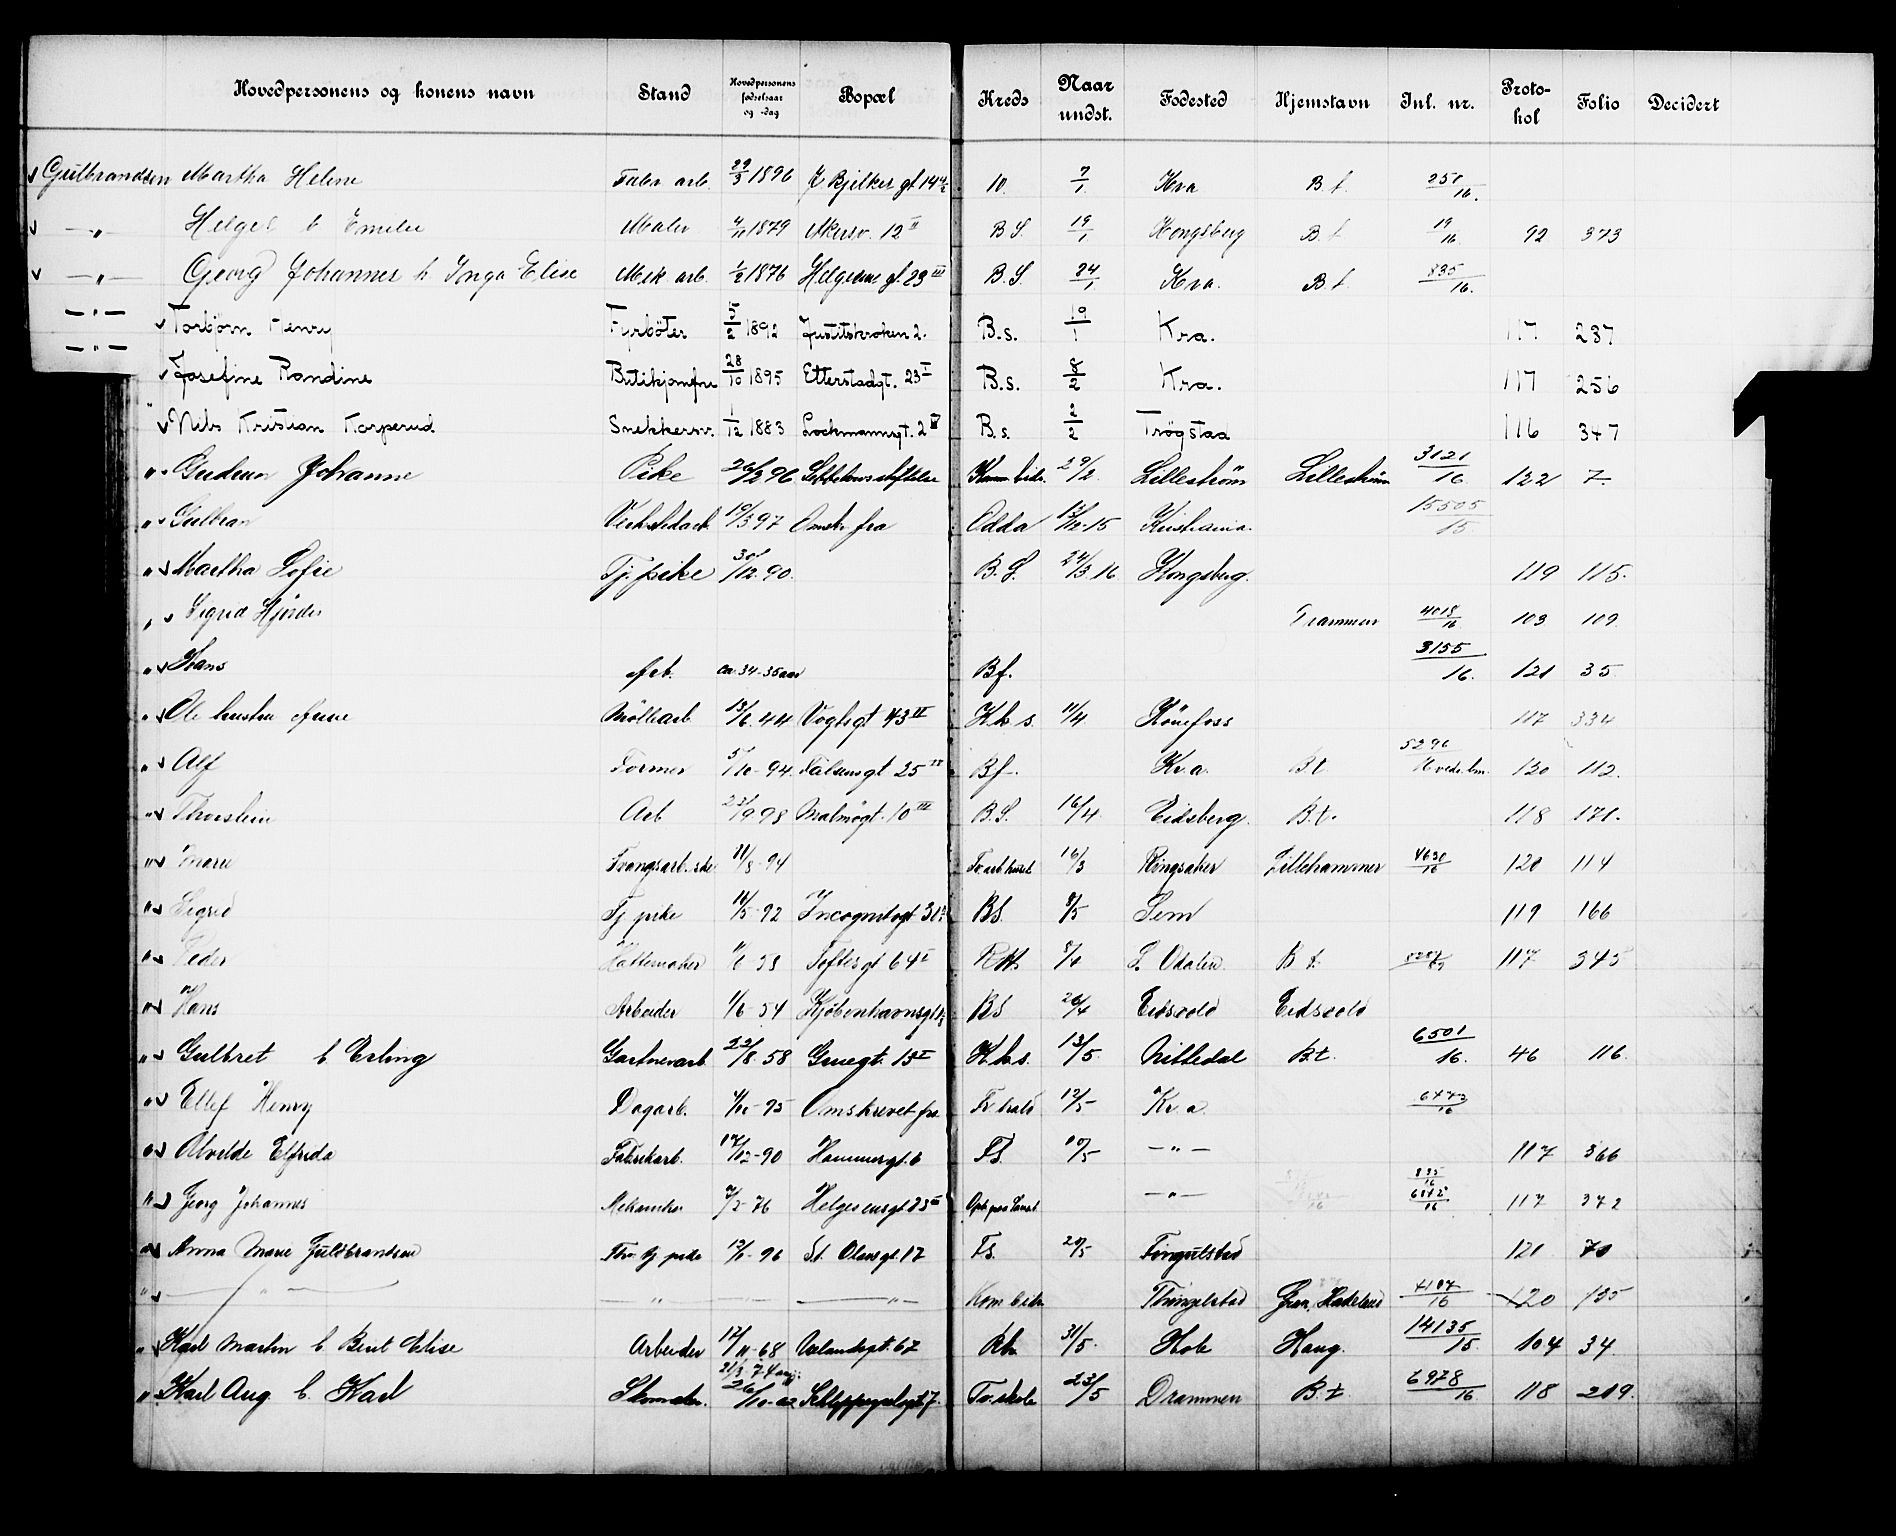 Hovedpersonens og konens navn Stand Hovedpersonens fødselsaar og -dag Bopæl Kreds Naar undst. Fødested Hjemstavn Inl. nr. Proto-kol Folio Decidert
Gulbrandsen Martha Helene Fabr arb. 29/3 1896 Bjelkes gt 14 10. 7/1 Kra B.t. 251/16.
—„— Helge b Emilie Maler 1879 Akersv. 12 II B.S. 19/1 Kongsberg B.t. 19/16 92 373
—„— Georg Johannes h Inga Elise Mek. arb. 1/2 1876 Helgesens gt. 23 III B.S. 24/1 Kra. B.t. 835/16.
—„— Torbjørn Henry Fyrbøter 5/2 1892 Justitskroken 2. B.s. 19/1 Kra. 117 237
—„— Josefine Randine Butikjomfru 28/10 1895 Etterstadgt. 23 I B.s. 8/2 Kra. 117 256
„ Nils Kristian Korperud Snekkersv. 1/12 1883 Lockmannsgt. 2 B.s. 2/2 Trøgstad 116 347
„ Gudrun Johanne Pike 26/2 96 Sebbelows stiftelse Komm bidr. 29/2. Lillestrøm Lillestrøm 3121/16. 122 7.
„ Gulbran Verkstedarb 19/3 97 Omskr fra Odda 13/12-15 Kristiania. 15505/15
„ Martha Sofie Tj. pike 30/12. 90. B.S. 24/3 16 Kongsberg. 119 115.
„ Sigrid Hjørdis Drammen 4018/16 103 109
„ Hans Arb. ca. 34-35 aar Bf. 3155/16. 121 35
„ Ole hustru Møllearb 13/6. 44 Vogtsgt 43 II K.h.s. 11/4 Hønefoss 117 334
„ Alf Former 5/10-94 Falsensgt 25 Bf. Kr.a. B.t 5296 120 112.
„ Thorstein Arb 23/9 98 Malmøgt. 10 III B.S. 16/4 Eidsberg. B.t. 118 171.
„ Marie Tvangsarb. 11/8-94 Tv arb huset 16/3 Ringsaker Lillehammer 4630/16 120 114
„ Sigrid Tj pike 16/5-92 Incognitogt 31 BS. 9/5 Sem 119 166
„ Peder Hattemaker Toftesgt 64 I R.H. S. Odalen. B t. 117 345
„ Hans Arbeider 1/6-54 Kjøbenhavnsgt BS 26/4 Eidsvold Eidsvold
„ Gulbret b Erling Gartnerarb. 22/8. 58 Gruegt. 15 I K.h.s. 13/5. Nittedal B.t. 6501/16. 46 116.
„ Ellef Henry Dagarb. -95 Omskrevet fra 12/5 Kr.a. 6473/16
„ Alvilde Elfrida Fabrikarb. 17/12-90 Hammersgt. 6 F.S. 10/5 —„— 117 366
„ Georg Johannes Mekaniker -76 Helgesensgt 23 III Opl. paa Kontoret —„— 835/16 6842/16 117 372
„ Anna Marie Guldbrandsen Tj pike -96 St. Olavsgt. 17 F.S. 20/5 Tingelstad 121 70
„ —„— „ — —„— Kom bidr Thingelstad Gran, Hadeland 4107/16 120 135
„ Karl Martin b Berit Elise Arbeider 17/11-68 Vælandsgt. 67 Rh. 31/5. Hole Haug. 14135/15. 104 34.
„ Karl Aug. b. Karl Skomaker. 21/3-74 26/10-02 Schleppegrelsgt 7. Tv. skole 23/5 Drammen B.t 6978/16 118 219.